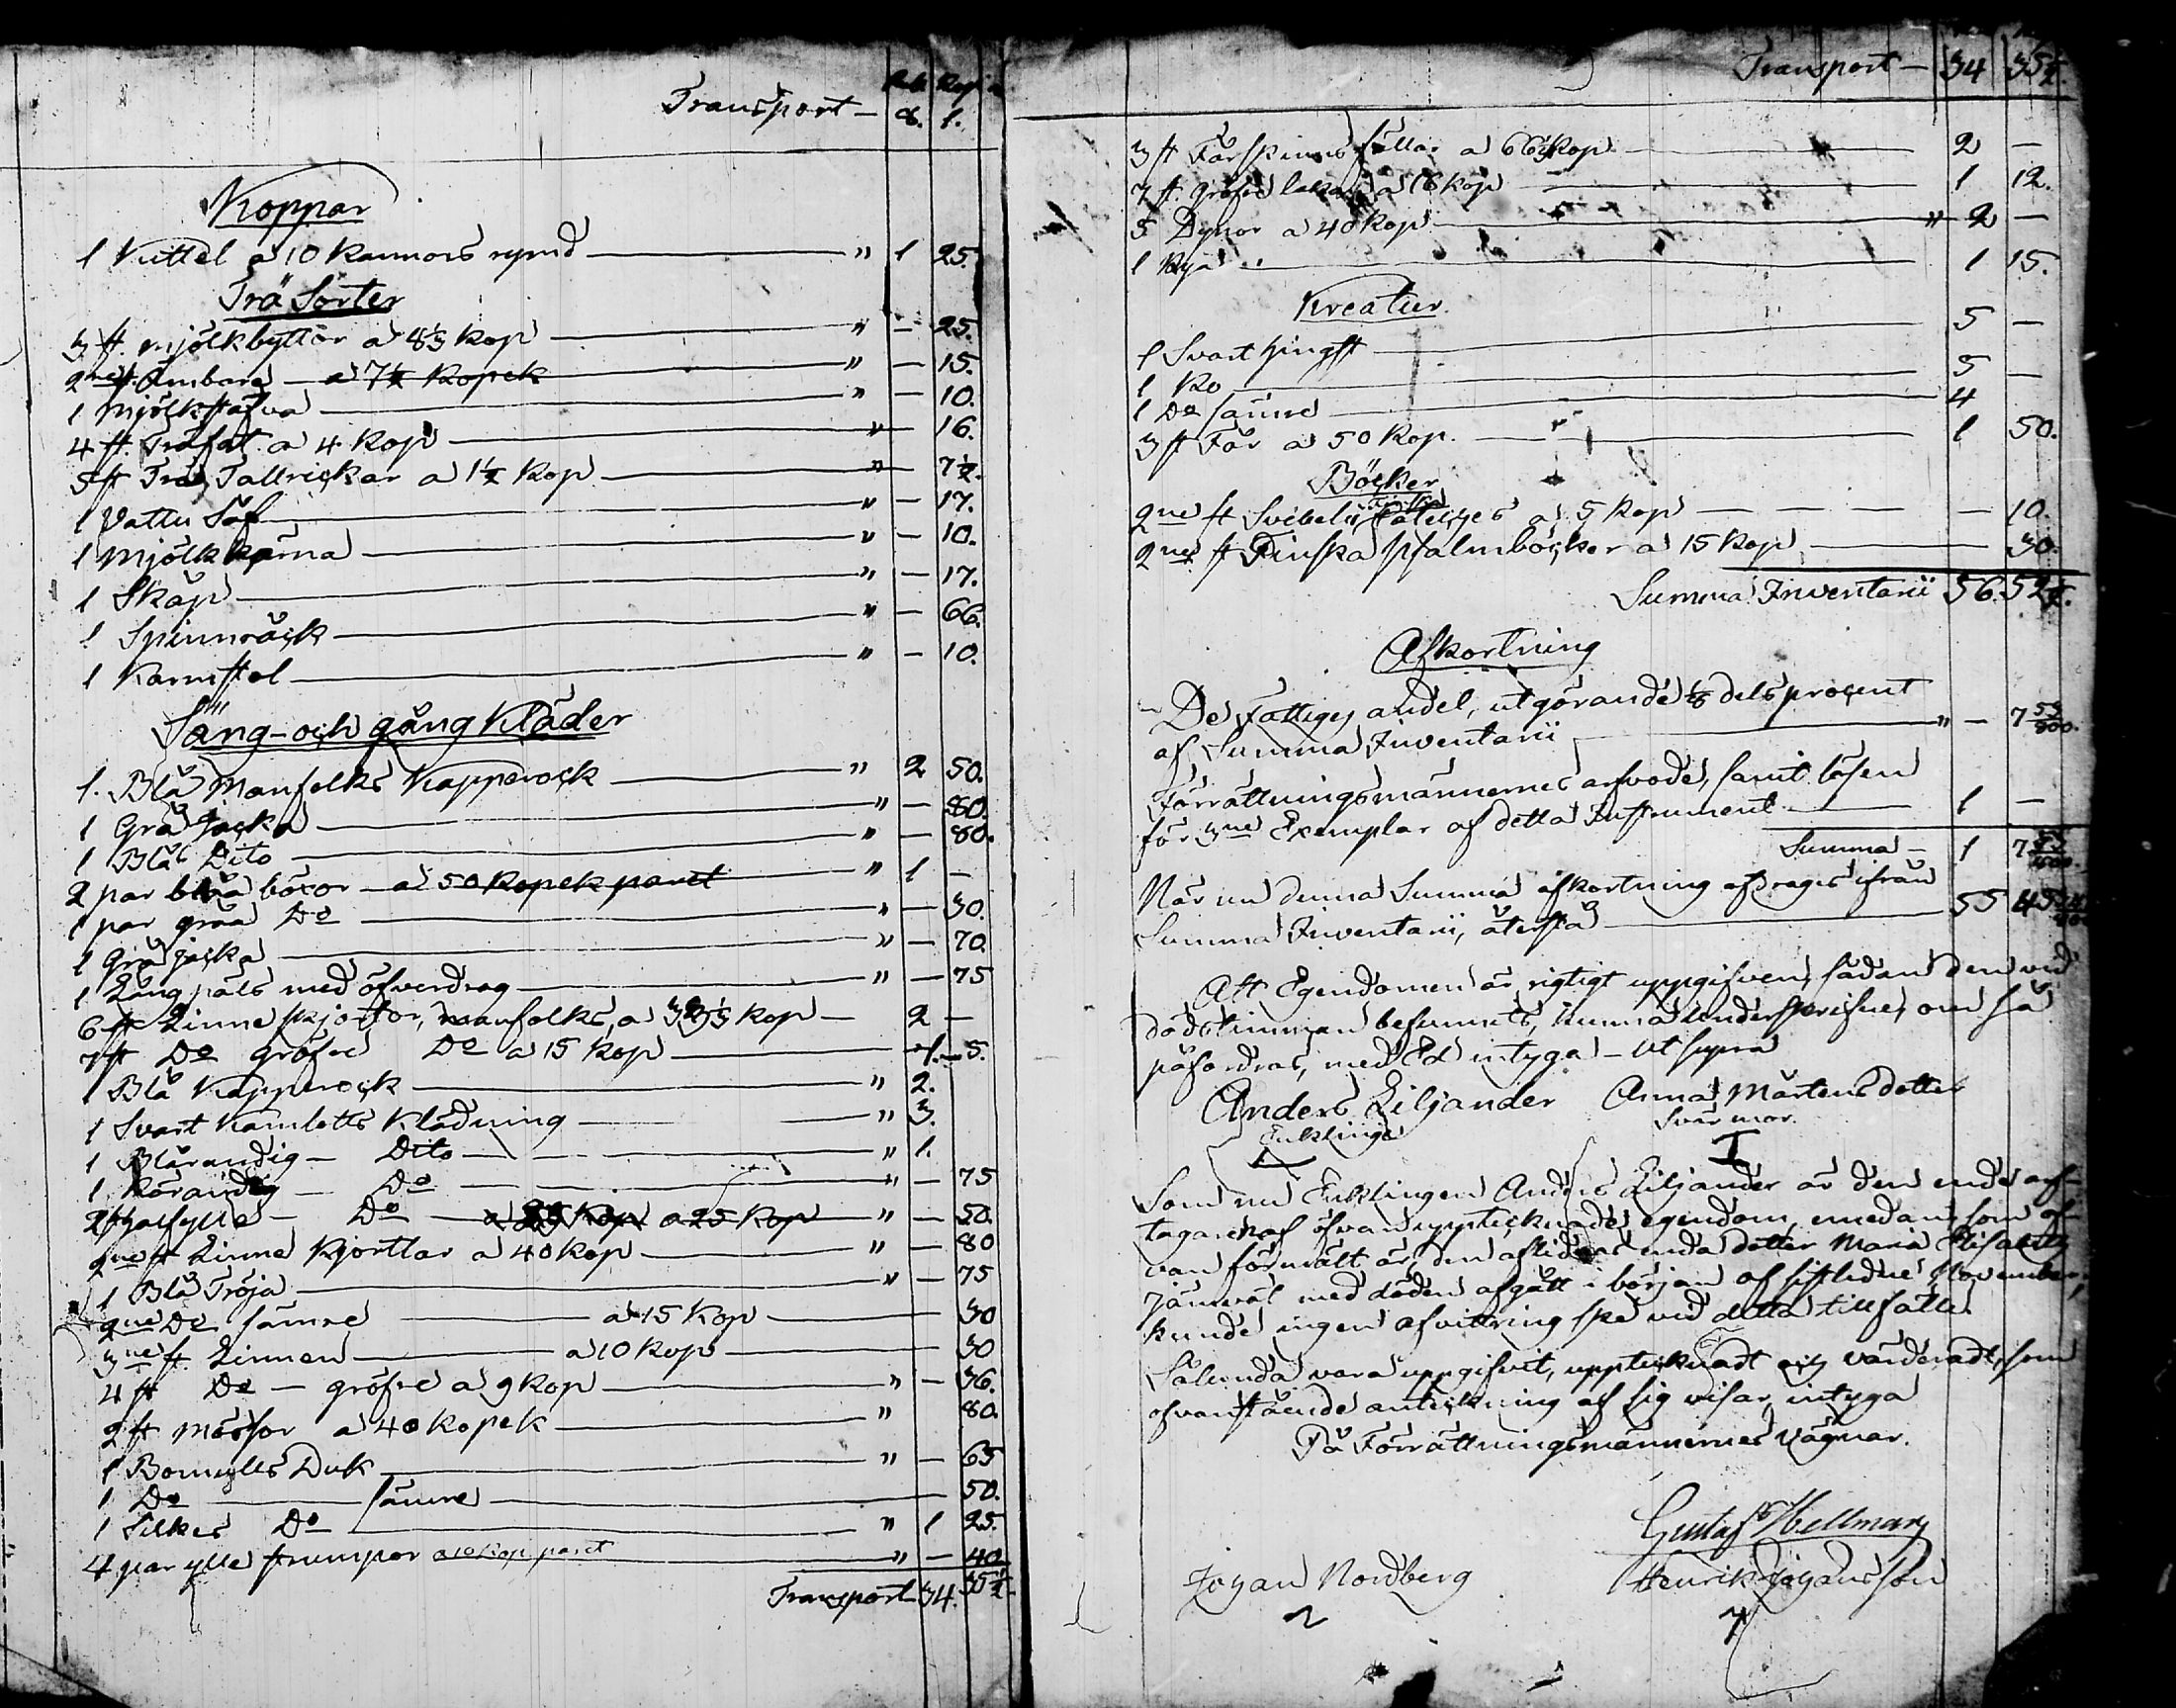 Rub Kop
Transport — 8. 1.
Koppar
1 Kittel a 10 Kannors rymd — " 1 25.
Trä Sorter
3 st. mjölkbyttor a 8⅓ Kop — " — 25.
2ne st. Ämbare — a 7½ Kopek " — 15.
1 mjölkstäfva — " — 10.
4 st. Träfat a 4 Kop — " — 16.
5 st Träe Tallrickar a 1½ Kop — " — 7½.
1 Vattu Så — " — 17.
1 Mjölkkärna — " — 10.
1 Skåp — " — 17.
1 Spinnråck — " — 66.
1 Karmstol — " — 10.
Säng- och gång Kläder
1. Blå Manfolks Kapprock — " 2 50.
1 Grå Jacka — " — 80.
1 Blå Dito — " — 80.
2 par blåa böxor — a 50 Kopek paret " 1 —
1 par gråa Do — " — 30.
1 Grå jacka — " — 70.
1 Lång päls med öfverdrag — " — 75
6 st Linne skjortor, manfolks, a 33⅓ Kop — 2 —
7 st Do gröfre Do a 15 Kop — 1. — 5.
1 Blå Kapprock — " 2.
1 Svart Kamlotts Klädning — " 3.
1 Blårandig — Dito — " 1.
1 Rörandig — Do — " — 75
2 st halfylle — Do — a 25 Kop a 25 Kop " — 50.
2ne st Linne Kjortlar a 40 Kop — " — 80
1 Blå Tröja — " — 75
2ne Do sämre — a 15 Kop — 30
3ne st. Linnen — a 10 Kop — 30
4 st Do — gröfre a 9 Kop — " — 36.
2 st Mössor a 40 Kopek — " 80.
1 Bomulls Duk — " — 65
1 Do — sämre — 50.
1 Silkes Do — " 1 25.
4 par ylle strumpor a 10 Kop paret — " — 40
Transport 34. 35½
Transport — 34 35½.
3 st Fårskinns fällar a 66⅔ Kop — 2 —
7 st. gröfre lakan a 16 Kop — 1 12.
5 Dynor a 40 Kop — " 2 —
1 Rya — 1 15.
Kreatur.
1 Svart hingst — 5 —
1 Ko — 5 —
1 Do sämre — 4
3 st Får a 50 Kop. — 1 50.
Böcker
2ne st Svebelii Finska Cateches a 5 Kop — — — — 10.
2ne st Finska psalmböcker a 15 Kop — 30.
Summa Inventarii 56. 52½.
Afkortning
De fattiges andel, utgörande ⅛ dels procent
af Summa Inventarii — " — 7 53/800.
Förrättningsmännernes arfvode, samt lösen
för 3ne Exemplar af detta Instrument — 1 —
Summa — 1 7 53/800.
När nu denna Summa afkortning afdrages ifrån
Summa Inventarii, återstå — 55 45
Att Egendomen är rigtigt uppgifven, sådan den vid
dödstimman befunnits, kunna underskrifne, om så
påfordras, med Ed intyga — Ut supra
Anders Liljander Anna Mårtensdotter
Enklinge Svärmor.
Som nu Enklingen Anders Liljander är den enda af-
tagaren af ofvan upptecknade egendom, emedan, som of-
van förmält är, den aflidnes enda dotter Maria Elisabeth
jämväl med döden afgått i början af sistledne November,
kunde ingen afvittring ske vid detta tillfälle.
Sålunda vara uppgifvit, upptecknadt och värderadt, som
ofvanstående anteckning af sig visar, intyga
På Förrättningsmännernes Vägnar.
Gustaf Hellman
Johan Nordberg Henrik Johansson